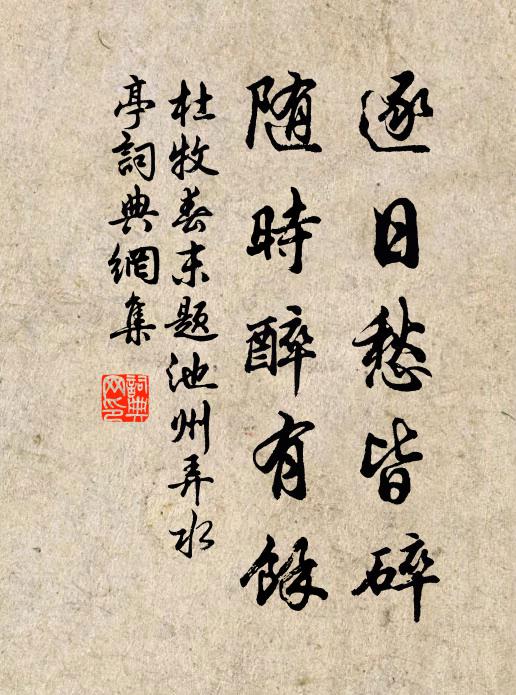 逐日愁皆碎
随時醉有餘
杜牧春末題池州弄水
亭詞典網集
詞典
网印